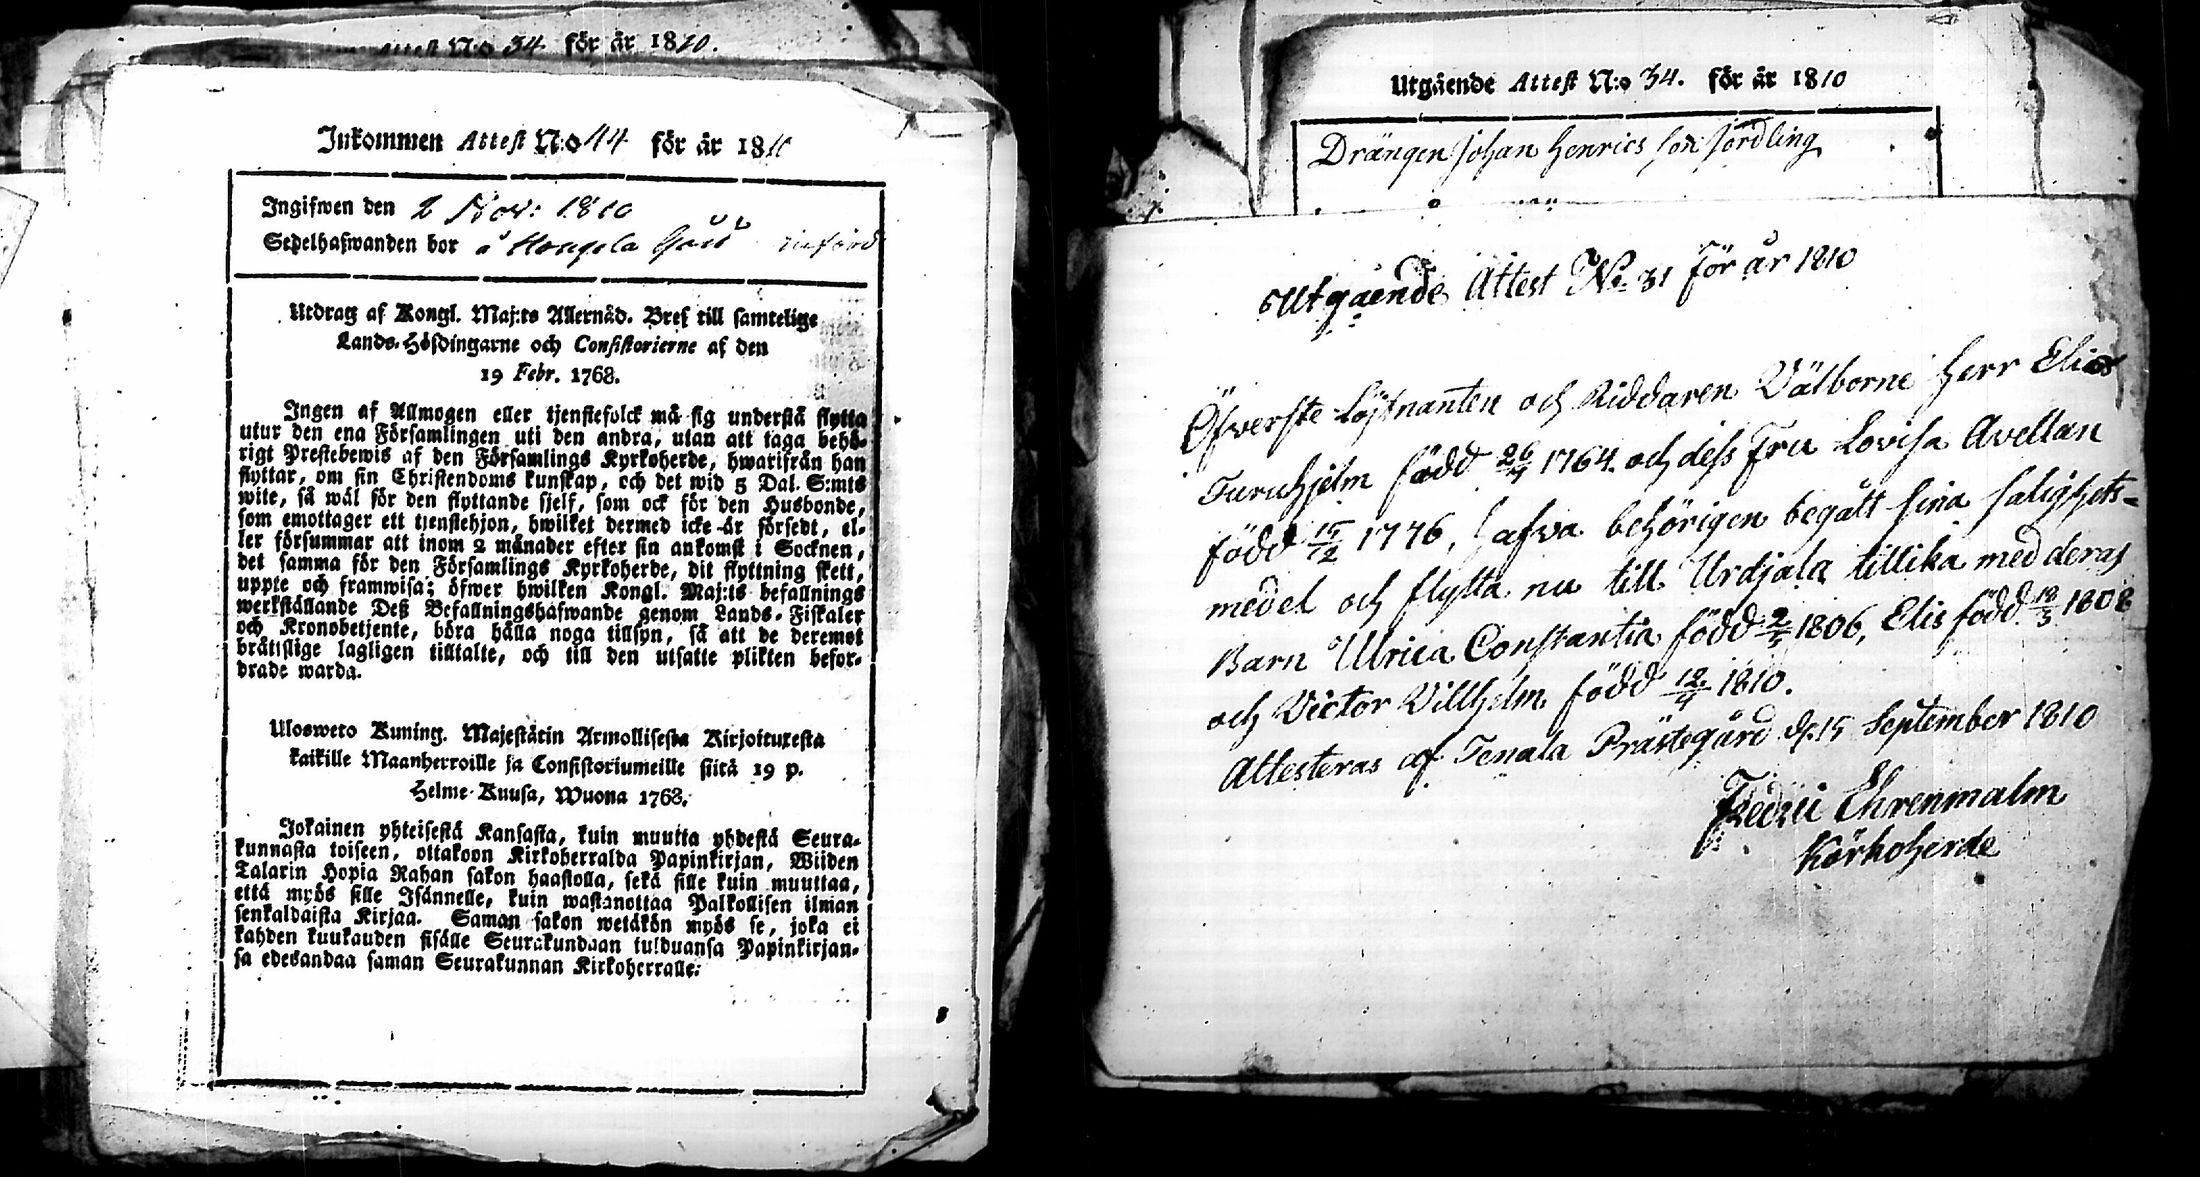 Attest No 34 för år 1810.
Inkommen Attest N:o 44 för år 1810
Ingifwen den 2 Nov: 1810
Sedelhafwanden bor å Hongola
Utdrag af Kongl. Maj:ts Allernåd. Bref till samtelige
Lands-Höfdingarne och Consistorierne af den
19 Febr. 1768.
Ingen af Allmogen eller tjenstefolck må sig understå flytta
utur den ena Församlingen uti den andra, utan att taga behö-
rigt Prestebewis af den Församlings Kyrkoherde, hwarifrån han
flyttar, om sin Christendoms kunskap, och det wid 5 Dal. S:mts
wite, så wäl för den flyttande sjelf, som ock för den Husbonde,
som emottager ett tjenstehjon, hwilket dermed icke är försedt, el-
ler försummar att inom 2 månader efter sin ankomst i Socknen,
det samma för den Församlings Kyrkoherde, dit flyttning skett,
uppte och framwisa; öfwer hwilken Kongl. Maj:ts befallnings
werkställande Deß Befallningshafwande genom Lands-Fiskaler
och Kronobetjente, böra hålla noga tillsyn, så att de deremot
bråttslige lagligen tilltalte, och till den utsatte plikten befor-
drade warda.
Ulosweto Kuning. Majestätin Armollisesta Kirjoituxesta
kaikille Maanherroille ja Consistoriumeille siitä 19 p.
Helme-Kuusa, Wuona 1768.
Jokainen yhteisestä Kansasta, kuin muutta yhdestä Seura-
kunnasta toiseen, ottakoon Kirkoherralda Papinkirjan, Wiiden
Talarin Hopia Rahan sakon haastolla, sekä sille kuin muuttaa,
että myös sille Isännelle, kuin wastanottaa Palkollisen ilman
senkaldaista Kirjaa. Saman sakon wetäkön myös se, joka ei
kahden kuukauden sisälle Seurakundaan tulduansa Papinkirjan-
sa edesandaa saman Seurakunnan Kirkoherralle.
Utgående Attest N:o 34. för år 1810
Drängen Johan Henrics son Jordling
Utgående Attest No 31 för år 1810
Öfverste Löjtnanten och Riddaren Välborne Herr Elias
Furuhjelm född 26/7 1764. och dess Fru Lovisa Avellan
född 15/12 1776, hafva behörigen begått sina salighets-
medel och flytta nu till Urdjala tillika med deras
Barn Ulrica Constantia född 2/5 1806, Elis född 19/3 1808
och Victor Villhelm född 12/4 1810.
Attesteras af Tenala Prästegård d. 15 September 1810
Fredric Ehrenmalm
Körkoherde